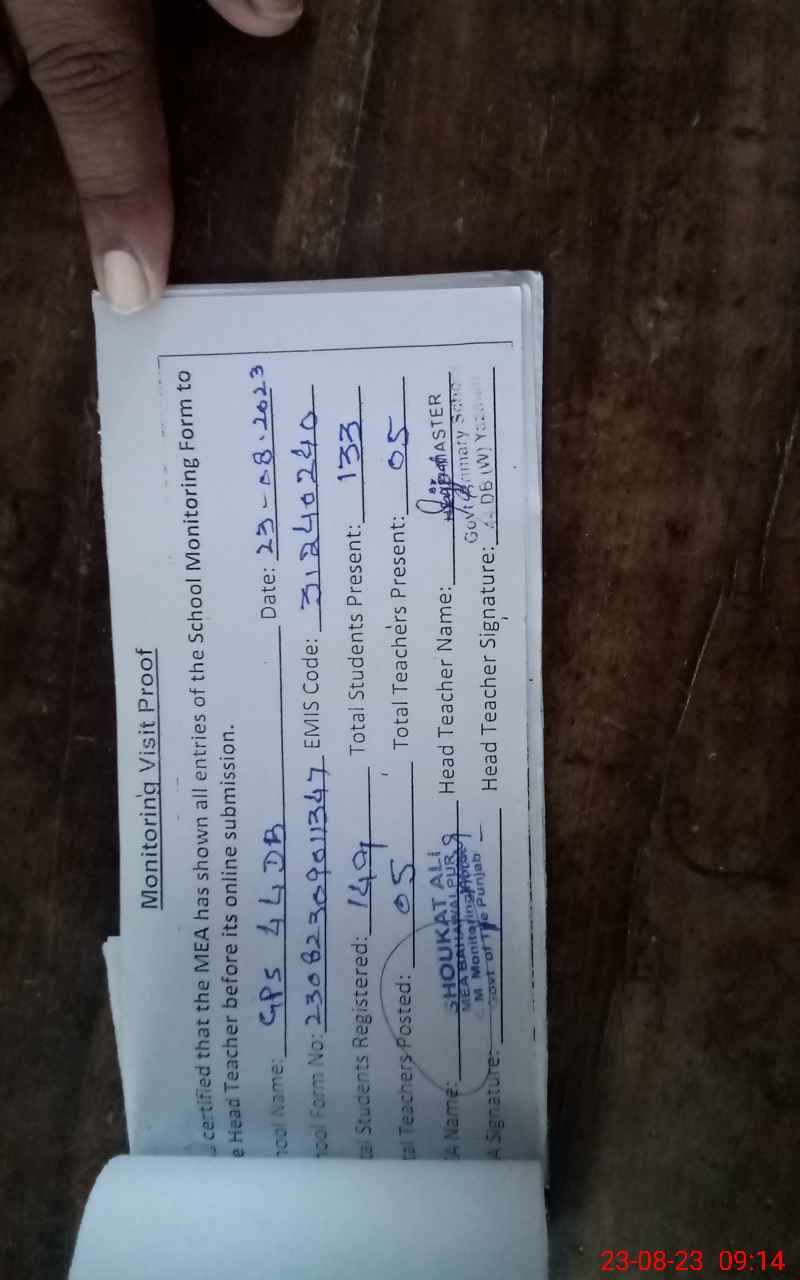 Monitoring Visit Proof
certified that the MEA has shown all entries of the School Monitoring Form to
e Head Teacher before its online submission.
ool Name: GPS 44 DB Date: 23-08-2023
ool Form No: 23082309011347 EMIS Code: 31240240
al Students Registered: 149 Total Students Present: 133
al Teachers Posted: 05 Total Teachers Present: 05
A Name: SHOUKAT ALI Head Teacher Name: MASTER
MEA BAHAWALPUR
M. Monitoring
Govt of The Punjab
Govt Primary Scho
A Signature: Head Teacher Signature: 44 DB (W) Yazman
23-08-23 09:14